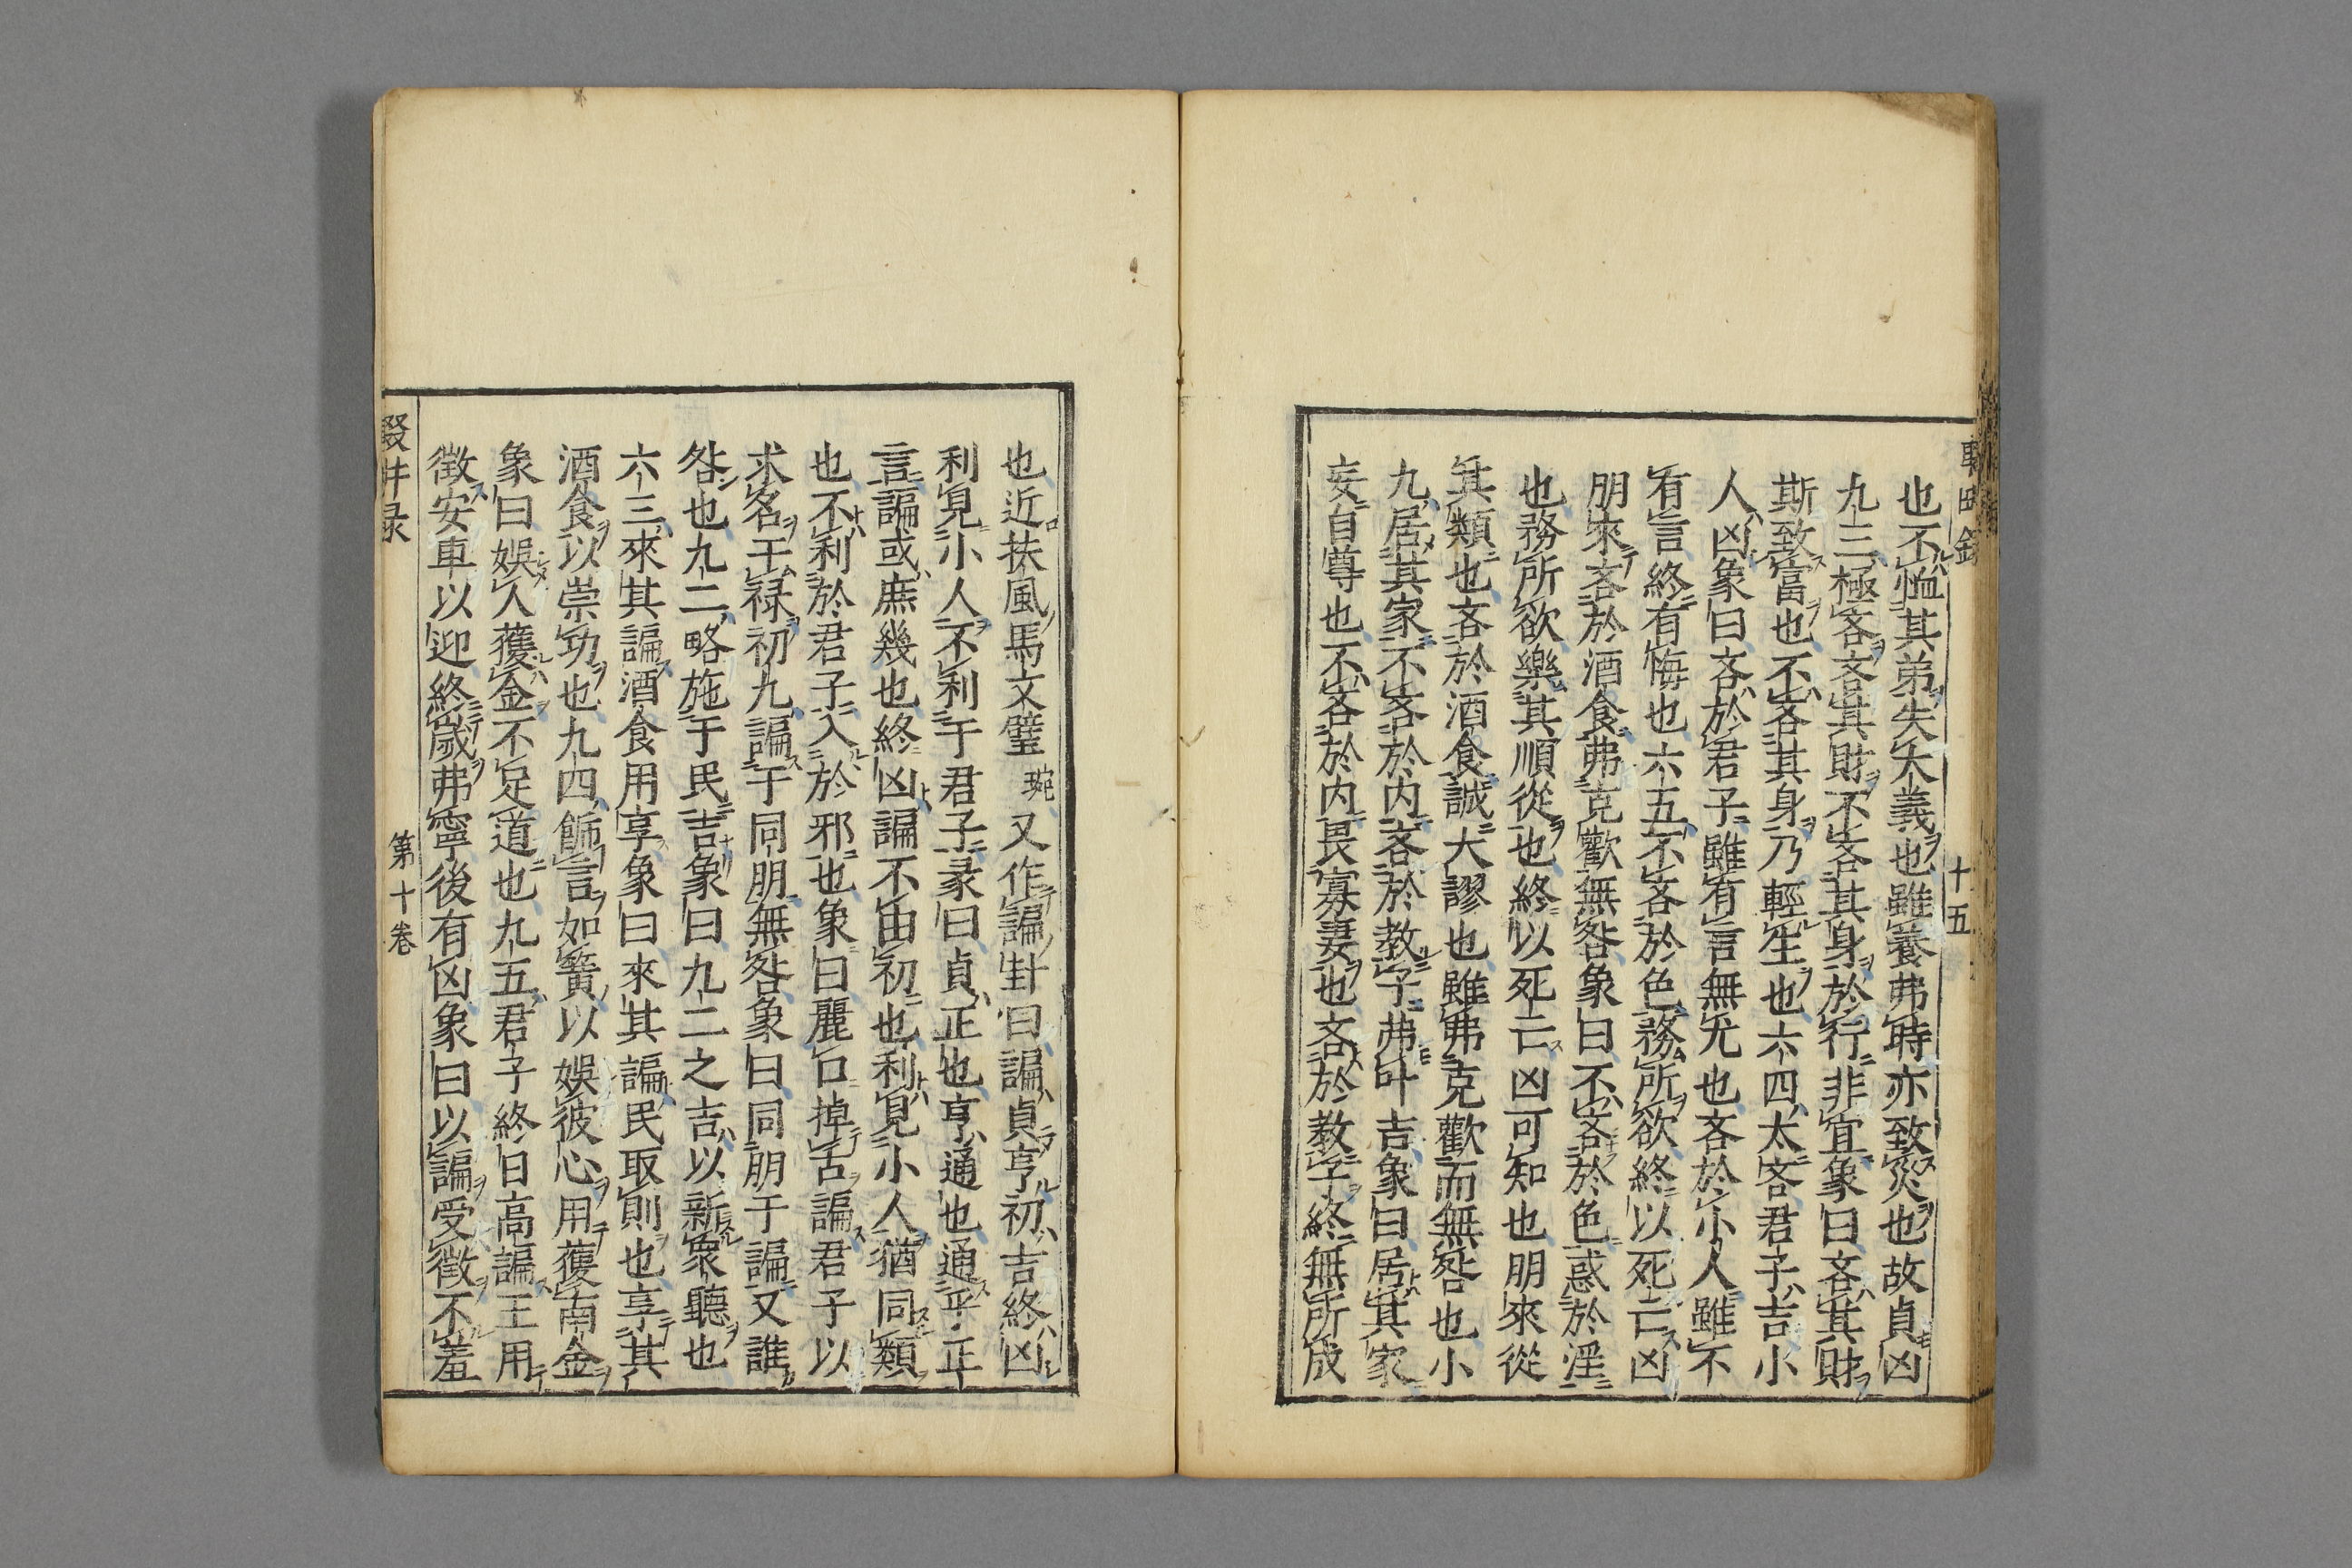 十五
也不恤其弟失大義也雖養弗時亦致災也故貞凶
九三極吝吝其財不吝其身於行非宜象曰吝其財
斯致富也不吝其身乃輕生也六四太吝君子吉小
人凶象曰吝於君子雖有言無尤也吝於小人雖不
有言終有悔也六五不吝於色務所欲終以死亡凶
朋來吝於酒食弗克歡無咎象曰不吝於色惑於淫
也務所欲樂其順從也終以死亡凶可知也朋來從
其類也吝於酒食誠大謬也雖弗克歡而無咎也小
九居其家不吝於内吝於教子弗叶吉象曰居其家
妄自尊也不吝於内畏寡妻也吝於教子終無所成
也近扶風馬文璧琬又作諞卦曰諞貞亨初吉終凶
利見小人不利于君子彖曰貞正也亨通也通乎正
言諞或庶幾也終凶諞不由初也利見小人猶同類
也不利於君子入於邪也象曰麗口掉舌諞君子以
求名干禄初九諞于同朋無咎象曰同朋于諞又誰
咎也九二略施于民吉象曰九二之吉以新衆聽也
六三來其諞酒食用享象曰來其諞民取則也享其
酒食以崇功也九四飾言如簧以娯彼心用獲南金
象曰娯人獲金不足道也九五君子終日高諞王用
徴安車以迎終歲弗寧後有凶象曰以諞受徴不羞
輟畊录
第十卷